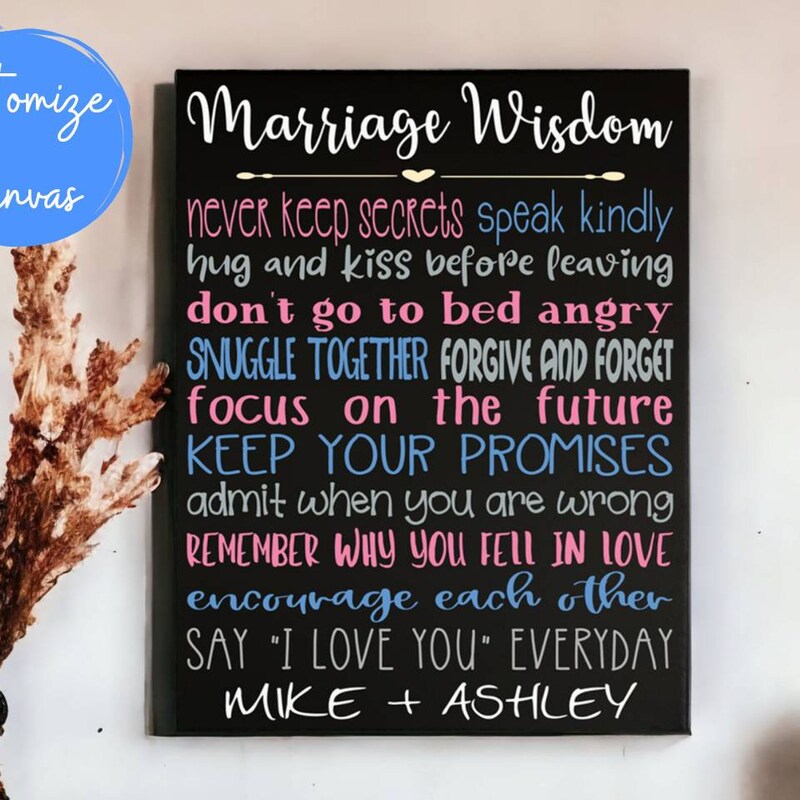 Marriage Wisdom
never keep secrets speak kindly
hug and kiss before leaving
don't go to bed angry
SNUGGLE TOGETHER FORGIVE AND FORGET
focus on the future
KEEP YOUR PROMISES
admit when you are wrong
REMEMBER WHY YOU FELL IN LOVE
encourage each other
SAY "I LOVE YOU" EVERYDAY
MIKE + ASHLEY